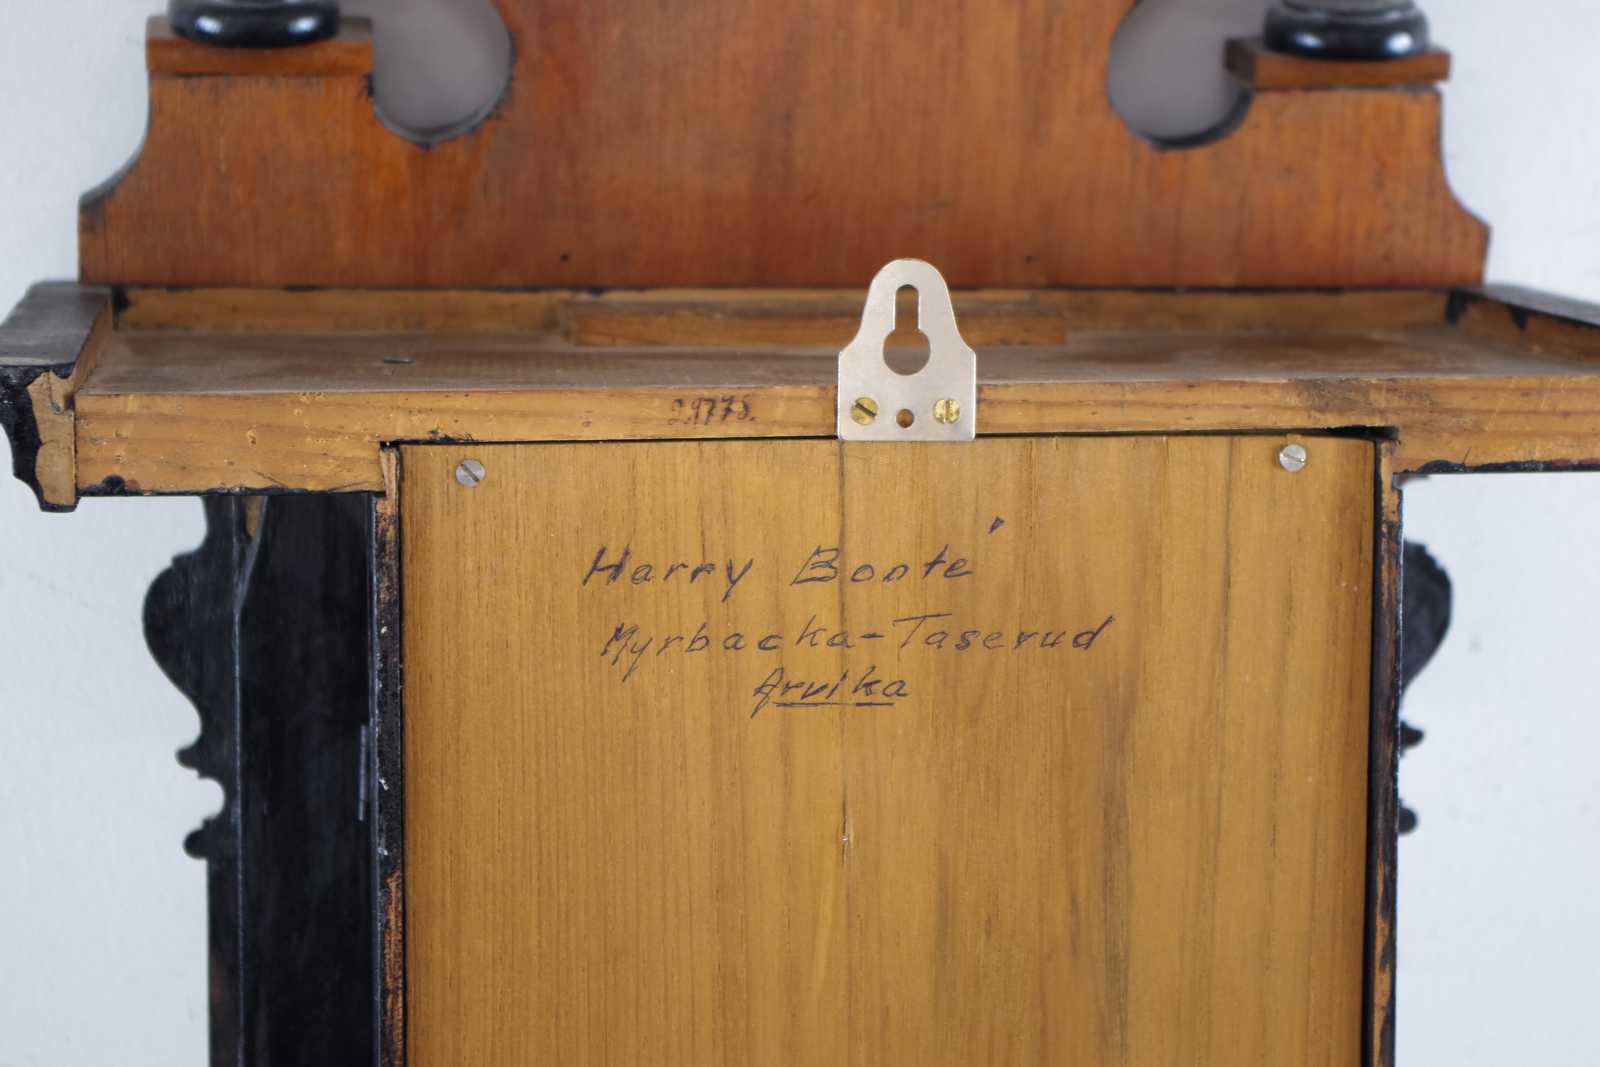 29775.
Harry Bonté
Myrbacka-Taserud
Arvika